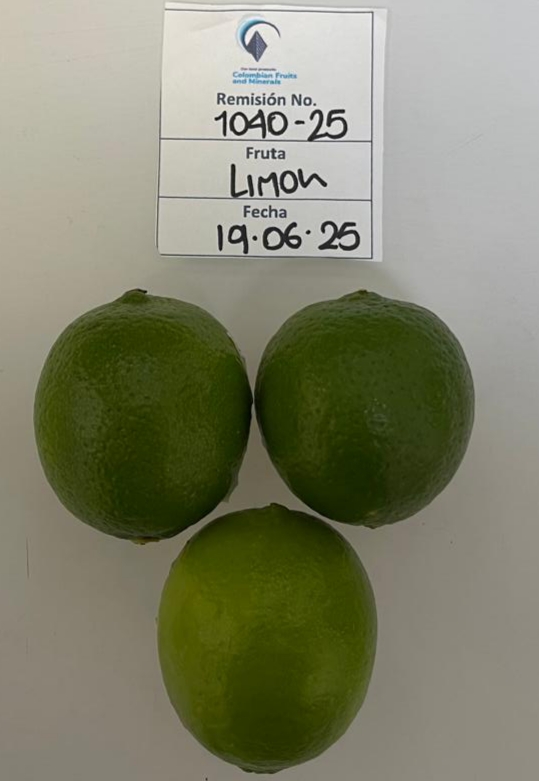 Colombian Fruits
and Minerals
Remisión No.
1040-25
Fruta
Limon
Fecha
19.06.25